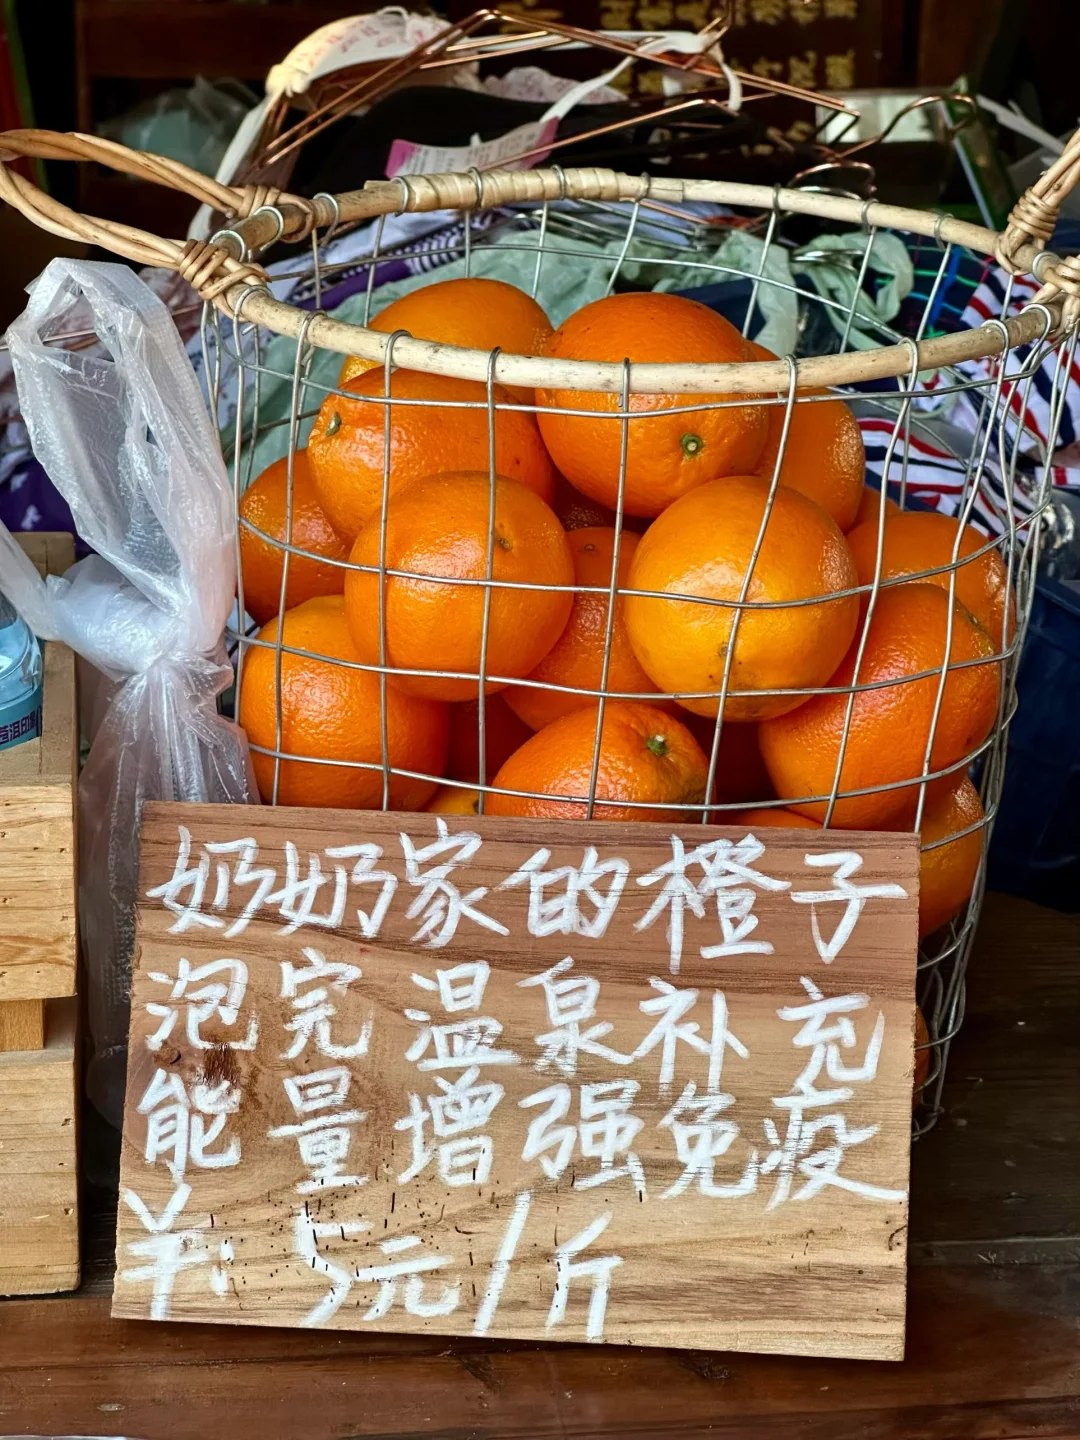 奶奶家的橙子
泡完温泉补充
能量增强免疫
¥:5元/斤